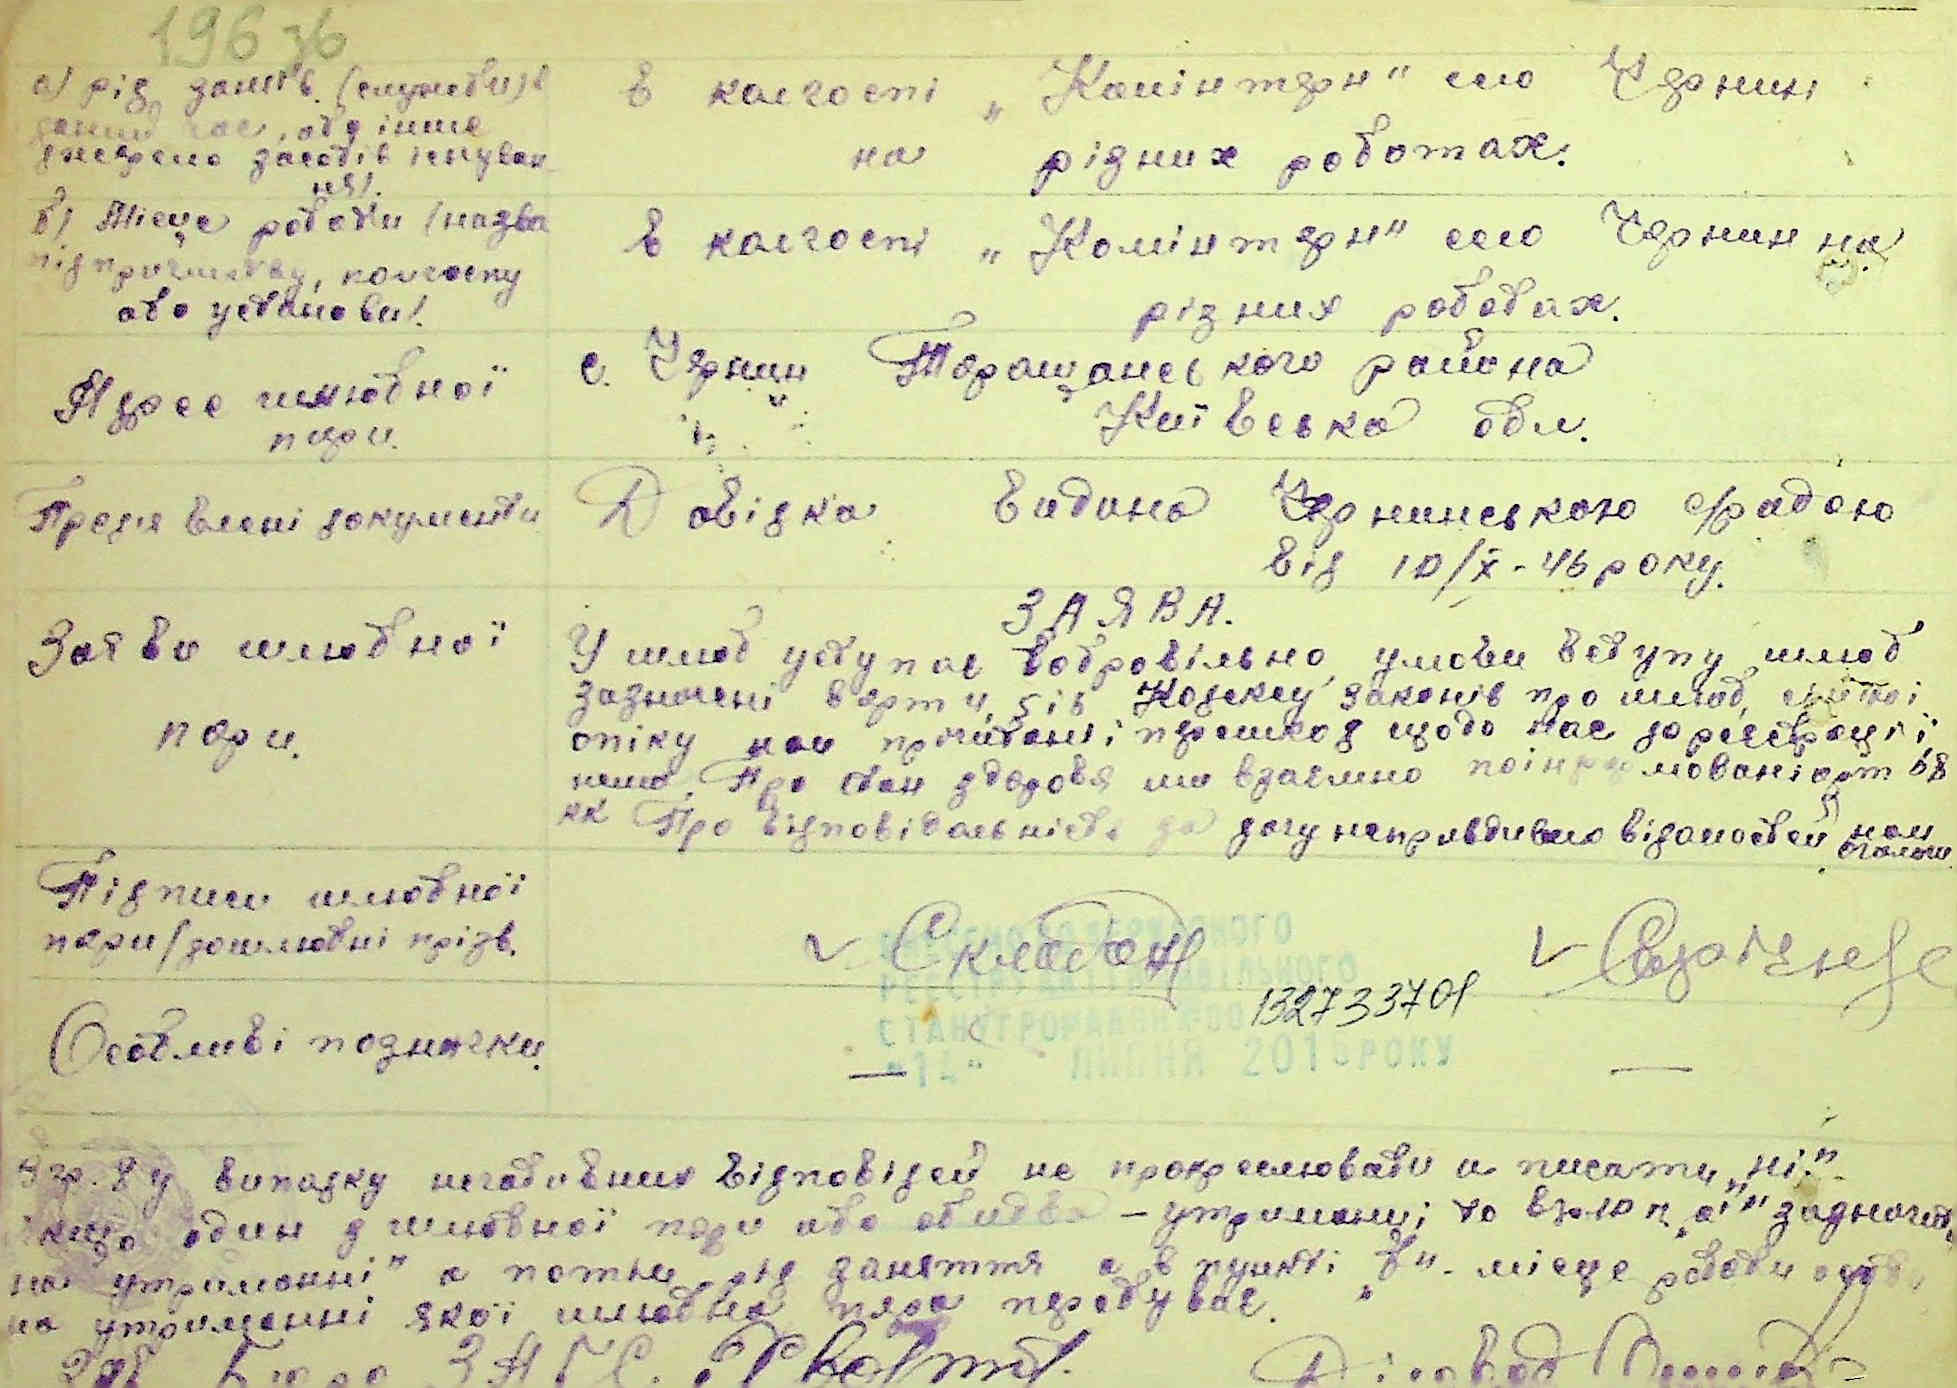 196 зв
а) рід занять (служби) в
даний час, або інше
джерело засобів існуван
ня/.
в колгоспі „Комінтерн" село Чернин
на різних роботах.
б) Місце роботи (назва
підприємству, колгоспу
або установи/.
в колгоспі „Комінтерн" село Чернин на
різних роботах.
Адрес шлюбної
пари.
с. Чернин Таращанського района
Київська обл.
Пред'явлені документи
Довідка видана Чернинською с/радою
від 10/X-46 року.
Заява шлюбної
пари.
ЗАЯВА.
У шлюб уступає добровільно, умови вступу шлюб
зазначені в арт 4, 5 і 6 Кодексу законів про шлюб,
опіку нам прочитані і перешкод щодо нас до реєстрації
нема. Про стан здоровя ми взаємно поінформовані арт 68
КК Про відповідальність за дачу неправдивих відомостей нам
оголош
Підписи шлюбної
пари/дошлюбні прізв.
132733701
РЕЄСТРУ АКТІВ ЦИВІЛЬНОГО
СТАНУ ГРОМАДЯН
ЛИПНЯ 201 РОКУ
Особливі позначки.
— —
у випадку негативних відповідей не прокреслювати а писати „ні".
якщо один з шлюбної пари або обидва — утриманці, то в п „а" зазначити
на утриманні" а потім рід заняття а в пункті „б" - місце роботи особи,
на утриманні якої шлюбна пара перебуває.
Зав Бюро ЗАГС.
Діловод